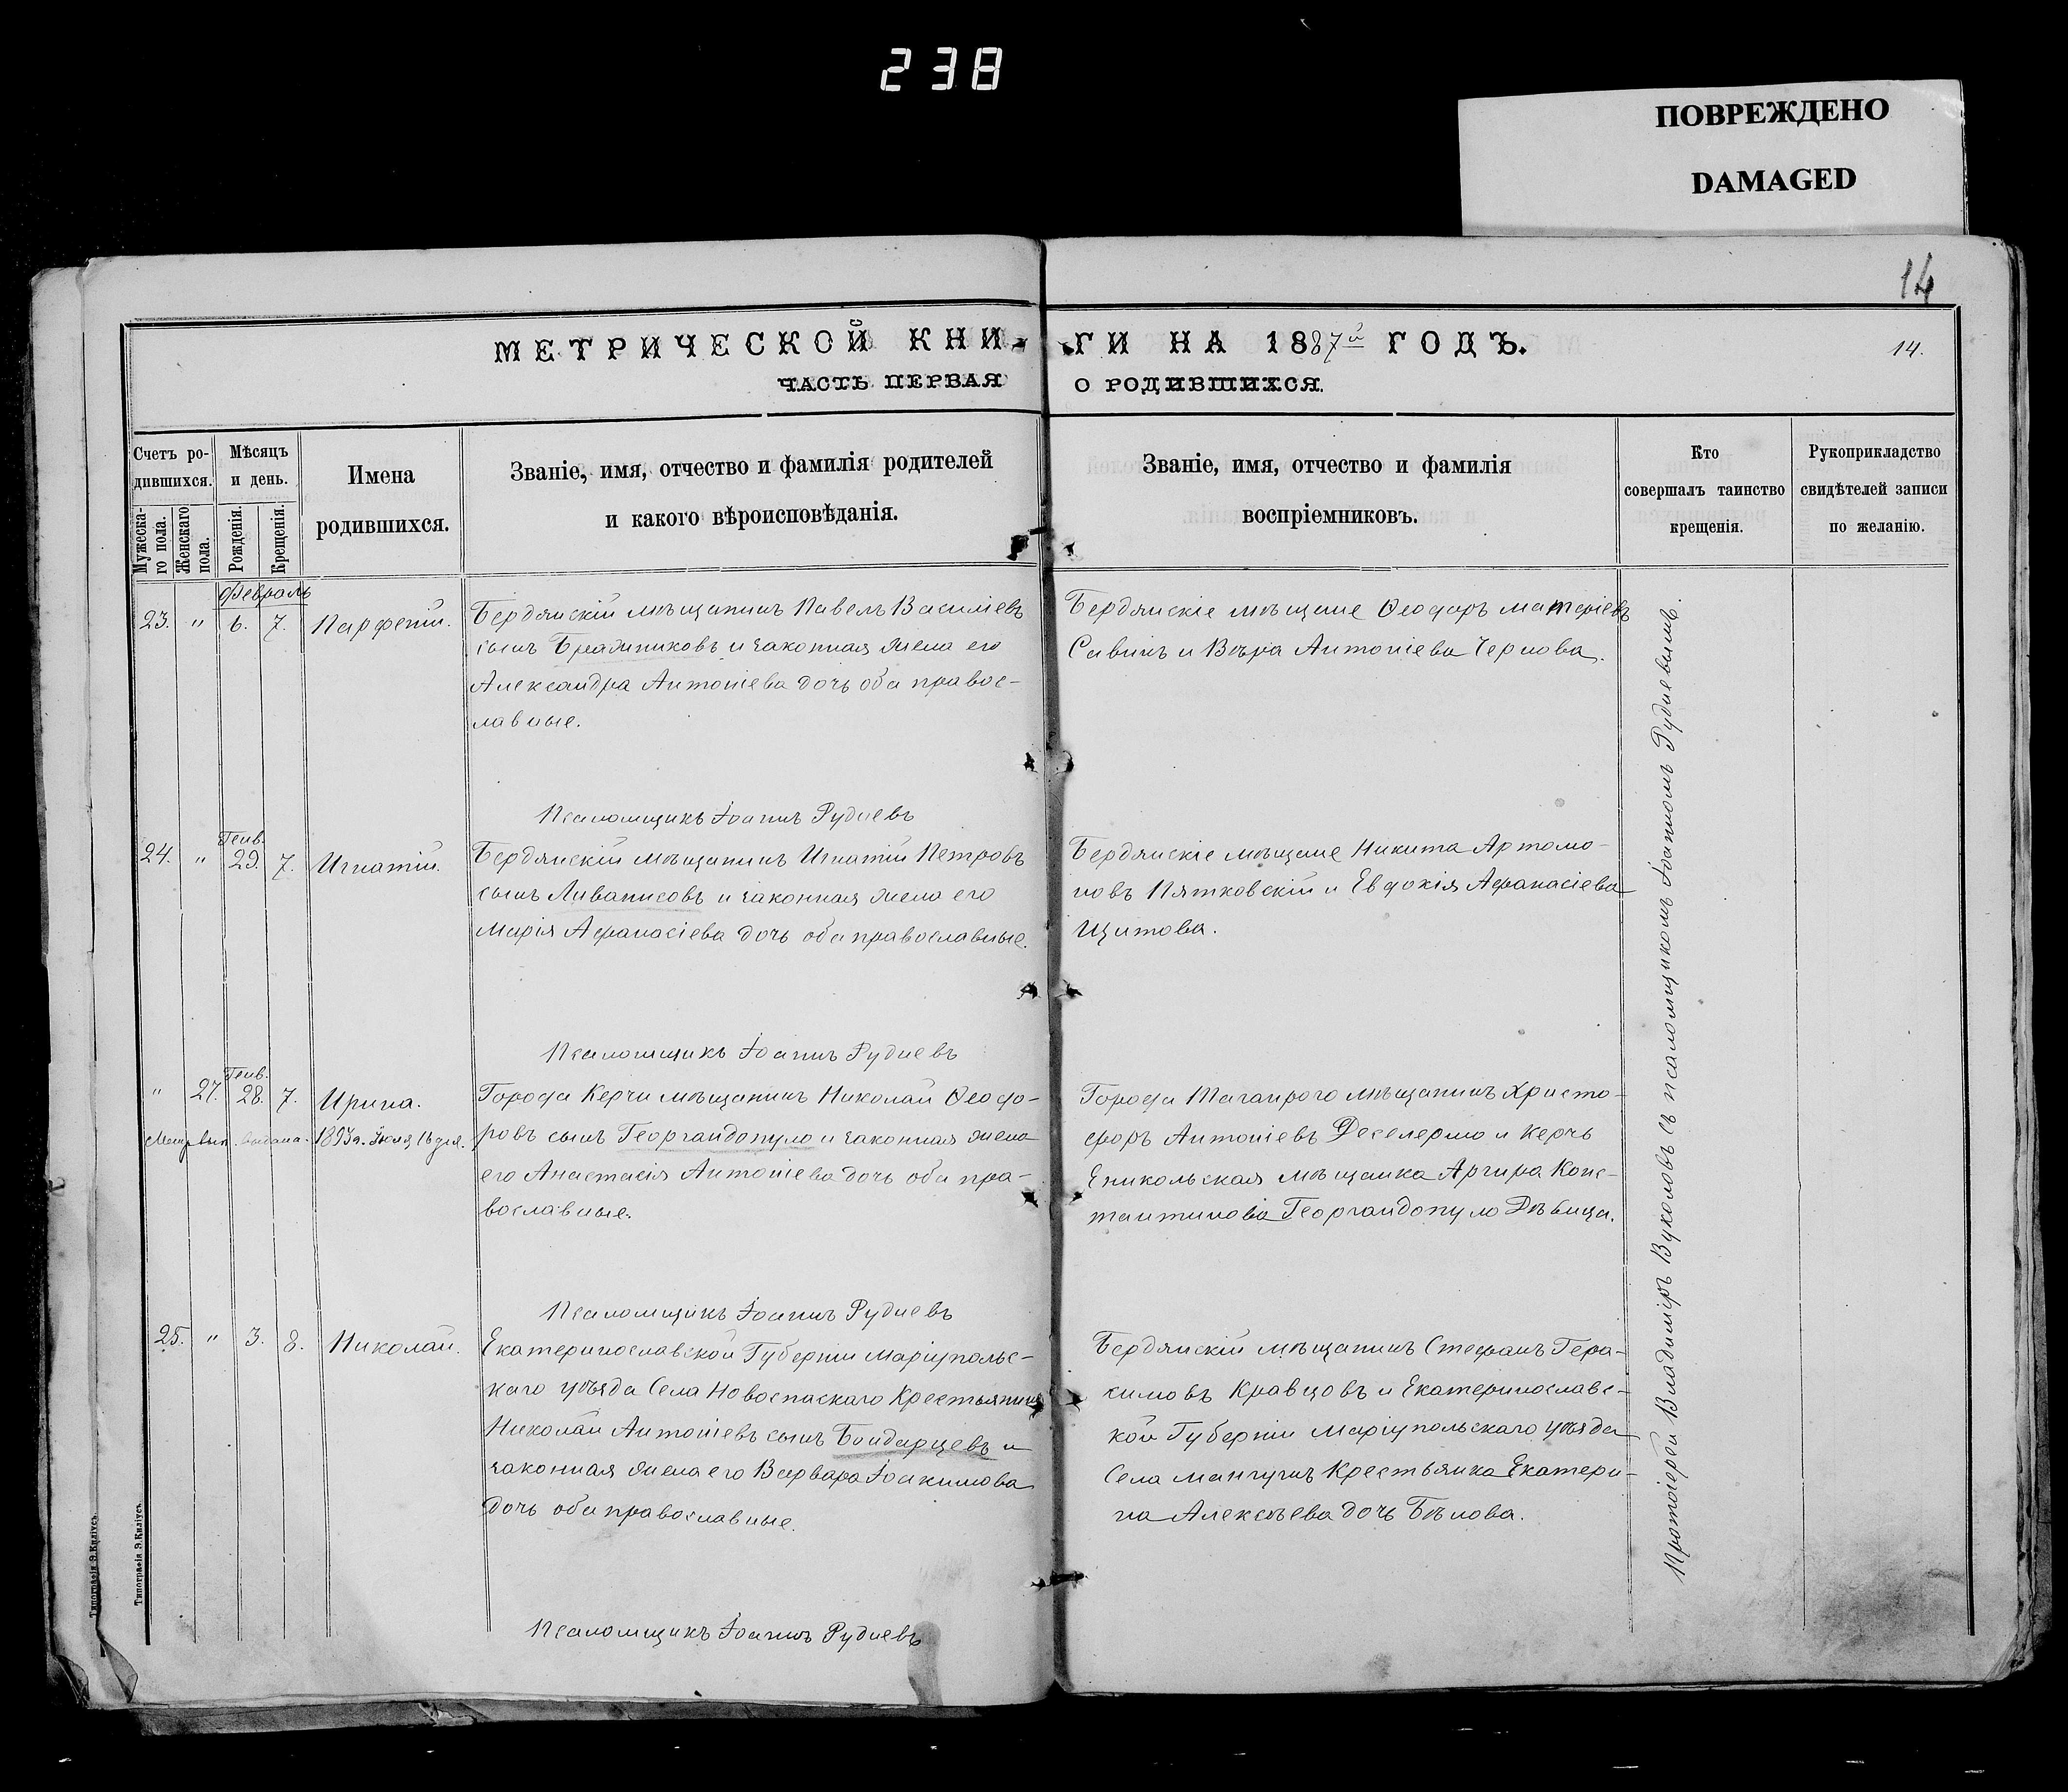 238
ПОВРЕЖДЕНО
DAMAGED
14
МЕТРИЧЕСКОЙ КНИ- ГИ НА 1887й ГОДЪ.
14.
ЧАСТЬ ПЕРВАЯ О РОДИВШИХСЯ.
Счетъ ро-
дившихся.
Мужеска-
го пола.
Женскаго
пола.
Мѣсяцъ
и день.
Рожденія.
Крещенія.
Имена
родившихся.
Званіе, имя, отчество и фамилія родителей
и какого вѣроисповѣданія.
Званіе, имя, отчество и фамилія
воспріемниковъ.
Кто
совершалъ таинство
крещенія.
Рукоприкладство
свидѣтелей записи
по желанію.
Февраль
23. " 6. 7. Парфеній.
Бердянскій мѣщанинъ Павелъ Василіевъ
сынъ и законная жена его
Александра Антоніева дочь оба правос-
лавные.
Бердянскіе мѣщане Ѳеодоръ
Савинъ и Вѣра Антоніева Чернова.
Псаломщикъ Іоаннъ Рудневъ
Генв.
24. " 29. 7. Игнатій.
Бердянскій мѣщанинъ Игнатій Петровъ
сынъ Ливанисовъ и законная жена его
Марія Афанасіева дочь оба православные.
Бердянскіе мѣщане Никита Артомо-
новъ Пятковскій и Евдокія Афанасіева
Щитова.
Псаломщикъ Іоаннъ Рудневъ
Генв.
" 27. 28. 7. Ирина.
выдана 1893г. Іюля 16 дня.
Города Керчи мѣщанинъ Николай Ѳеодо-
ровъ сынъ Георгандопуло и законная жена
его Анастасія Антоніева дочь оба пра-
вославные.
Города Таганрога мѣщанинъ Христо-
форъ Антоніевъ и Керчь
Еникольская мѣщанка Аргира Конс-
тантинова Георгандопуло Дѣвица.
Псаломщикъ Іоаннъ Рудневъ
25. " 3. 8. Николай.
Екатеринославской Губерніи Маріупольс-
каго уѣзда Села Новоспаскаго Крестьянинъ
Николай Антоніевъ сынъ Бондарцевъ и
законная жена его Варвара Іоакимова
дочь оба православные.
Бердянскій мѣщанинъ Стефанъ Гера-
симовъ Кравцовъ и Екатеринославс-
кой Губерніи Маріупольскаго уѣзда
Села Мангушъ Крестьянка Екатери-
на Алексѣева дочь Бѣлова.
Псаломщикъ Іоаннъ Рудневъ
Протоіерей Владиміръ Вуколовъ съ псаломщикомъ Іоанномъ Рудневымъ.
Типографія Э. Киліусъ.
Типографія Э. Киліусъ.